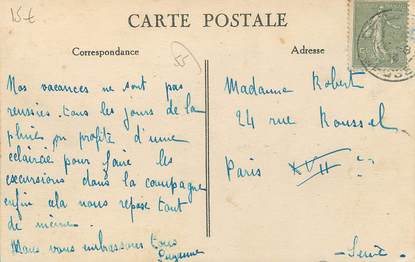 15€
CARTE POSTALE
Correspondance
Adresse
55
Nos vacances ne sont pas
reussies tous les jours de la
pluie, on profite d'une
eclaircie pour faire les
excursions dans la campagne
enfin cela nous repose tout
de même.
Nous vous embrassons tous
Suzanne
Madame Robert
24 rue Roussel
Paris XVII e
Seine